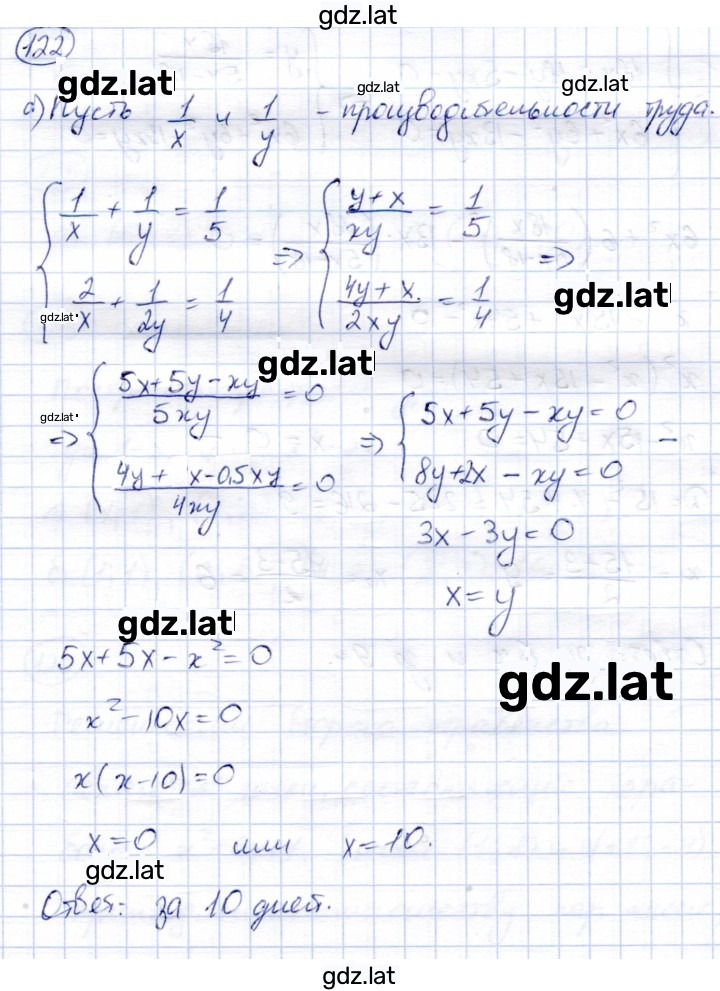 gdz.lat
122
gdz.lat
gdz.lat
gdz.lat
а) Пусть 1/x и 1/y - производительности труда.
{ 1/x + 1/y = 1/5 => { (y+x)/xy = 1/5 =>
2/x + 1/2y = 1/4 (4y+x)/2xy = 1/4
gdz.lat
gdz.lat
gdz.lat
=> { (5x+5y-xy)/5xy = 0 => { 5x+5y-xy=0 -
(4y+ x-0,5xy)/4xy = 0 8y+2x-xy=0
gdz.lat
3x-3y=0
x=y
gdz.lat
5x+5x-x²=0
gdz.lat
x²-10x=0
x(x-10)=0
x=0 или x=10.
gdz.lat
Ответ: за 10 дней.
gdz.lat